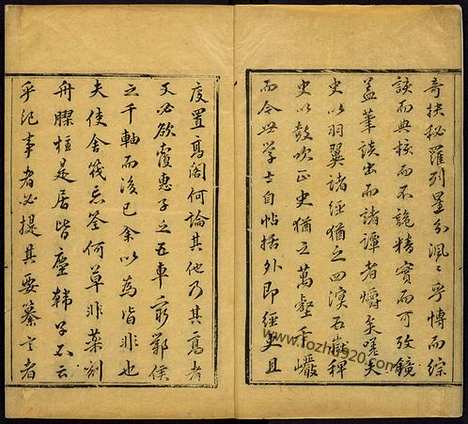 奇抉秘羅列星分洮洮乎博而綜
談而典核而不詭精實而可攷鏡
蓋筆談出而諸譚者嚼矣嗟夫
史以羽翼諸經猶之四瀆石
史以鼓吹正史猶之萬壑千巖
而今世學士自帖括外即經史且
度置高閣何論其他乃其高者
又必欲覆惠子之五車窮鄴侯
之千軸而後已余以為皆非也
夫使舍筏忘筌何草非藥刻
舟膠柱是居皆塵韓子不云
乎紀事者必提其要纂言者
www.fozhu920.com